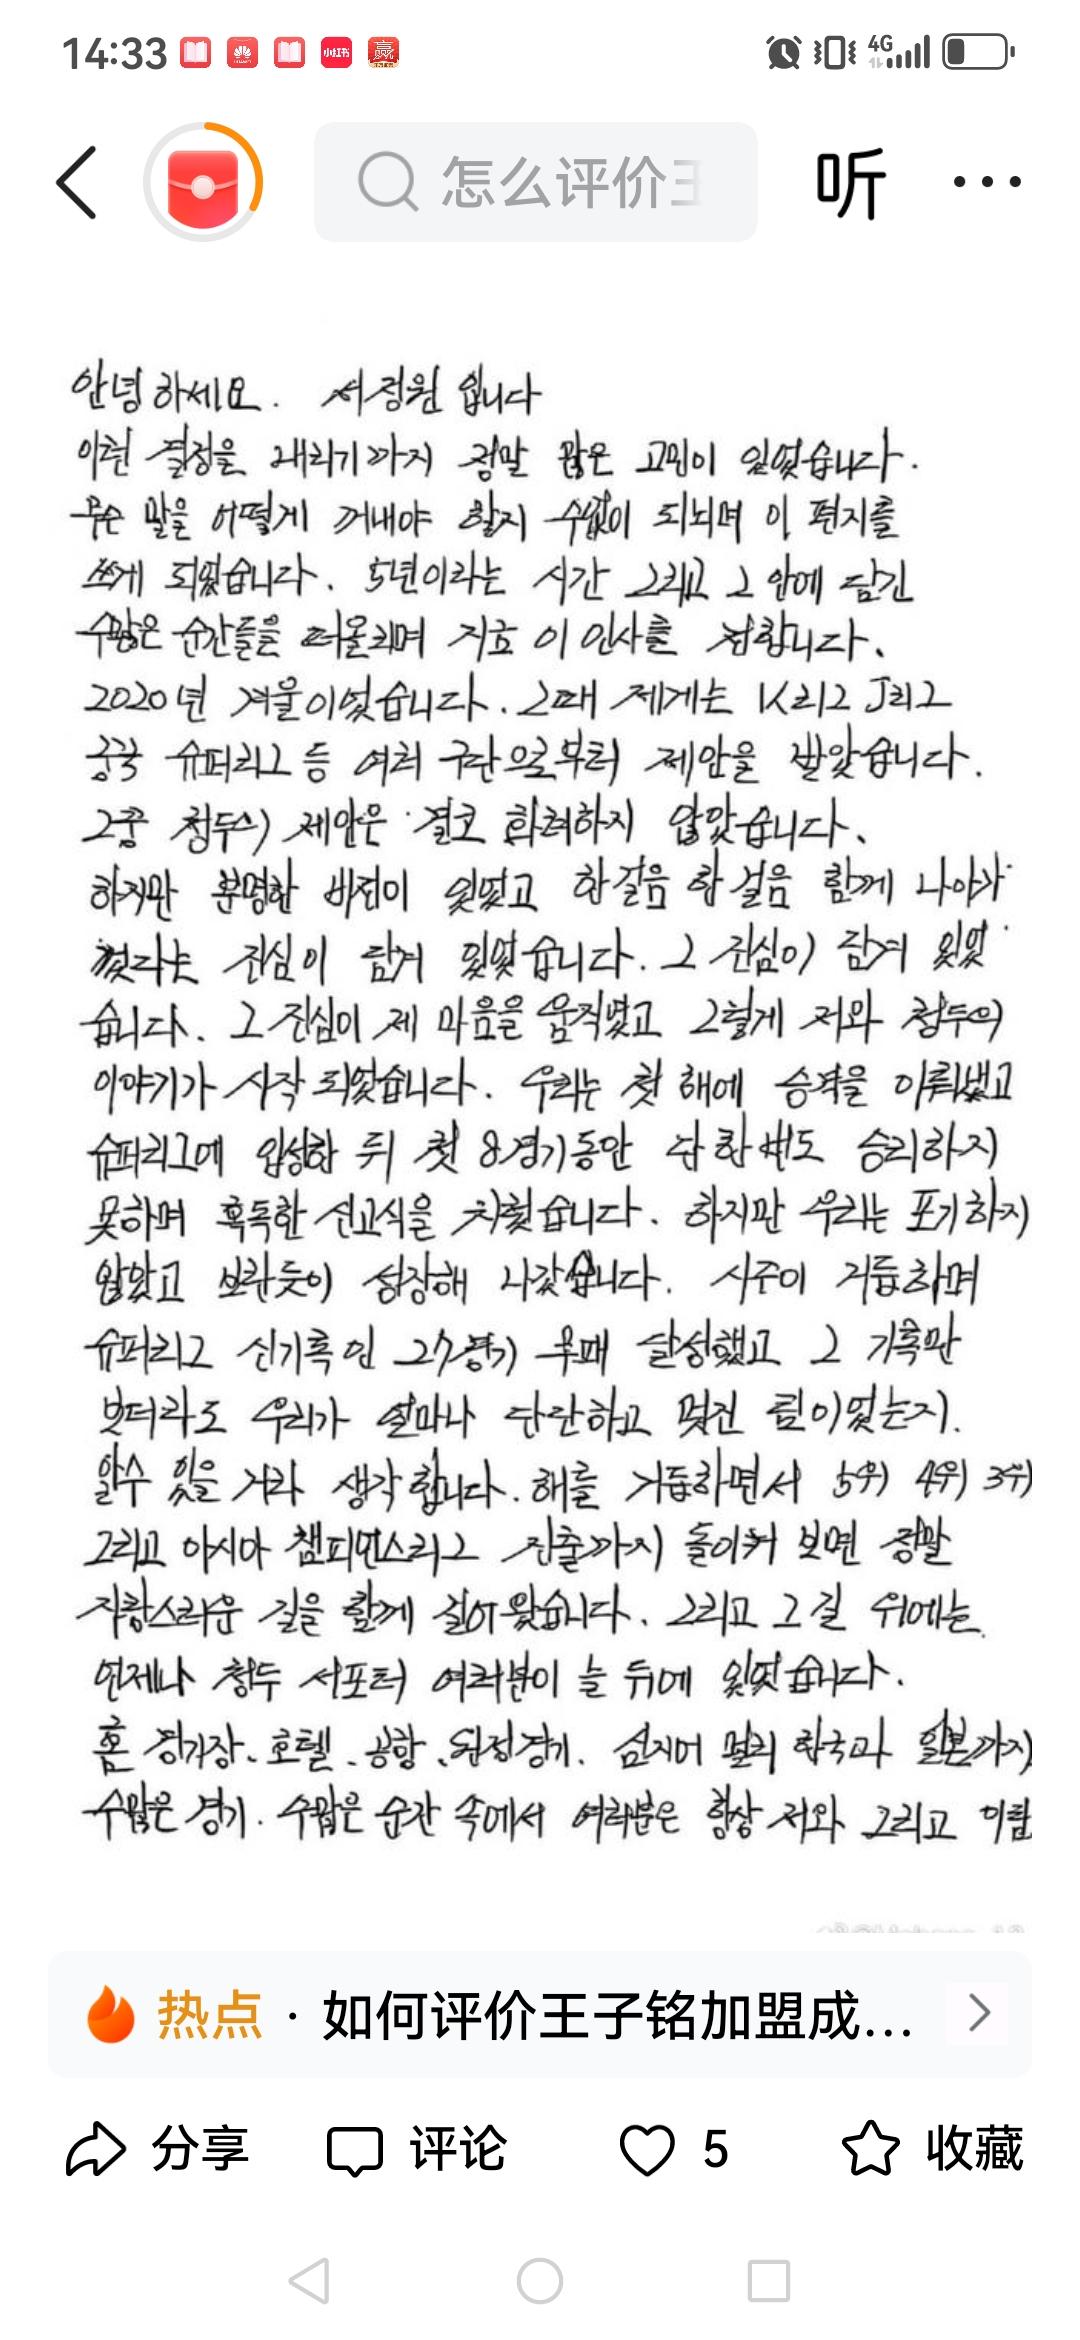 14:33
4G
怎么评价
听
안녕하세요. 서정원 입니다
이런 결정을 내리기까지 정말 많은 고민이 있었습니다.
무슨 말을 어떻게 꺼내야 할지 수없이 되뇌며 이 편지를
쓰게 되었습니다. 5년이라는 시간 그리고 그 안에 담긴
수많은 순간들을 떠올리며 지금 이 인사를 전합니다.
2020년 겨울이었습니다. 그때 제게는 K리그 J리그
중국 슈퍼리그 등 여러 구단으로부터 제안을 받았습니다.
그중 청두의 제안은 결코 화려하지 않았습니다.
하지만 분명한 비전이 있었고 한걸음 한걸음 함께 나아가
겠다는 진심이 담겨 있었습니다. 그 진심이 담겨 있었
습니다. 그 진심이 제 마음을 움직였고 그렇게 저와 청두의
이야기가 시작 되었습니다. 우리는 첫 해에 승격을 이뤄냈고
슈퍼리그에 입성한 뒤 첫 8경기동안 단 한번도 승리하지
못하며 혹독한 신고식을 치렀습니다. 하지만 우리는 포기하지
않았고 보란듯이 성장해 나갔습니다. 시즌이 거듭하며
슈퍼리그 신기록인 27경기 무패 달성했고 그 기록만
보더라도 우리가 얼마나 단단하고 멋진 팀이었는지.
알수 있을 거라 생각합니다. 해를 거듭하면서 5위 4위 3위
그리고 아시아 챔피언스리그 진출까지 돌이켜 보면 정말
자랑스러운 길을 함께 걸어왔습니다. 그리고 그 길 위에는.
언제나 청두 서포터 여러분이 늘 뒤에 있었습니다.
홈 경기장、호텔、공항、원정경기. 심지어 멀리 한국과 일본까지
수많은 경기. 수많은 순간 속에서 여러분은 항상 저와 그리고 이팀
热点 · 如何评价王子铭加盟成...
分享
评论
5
收藏